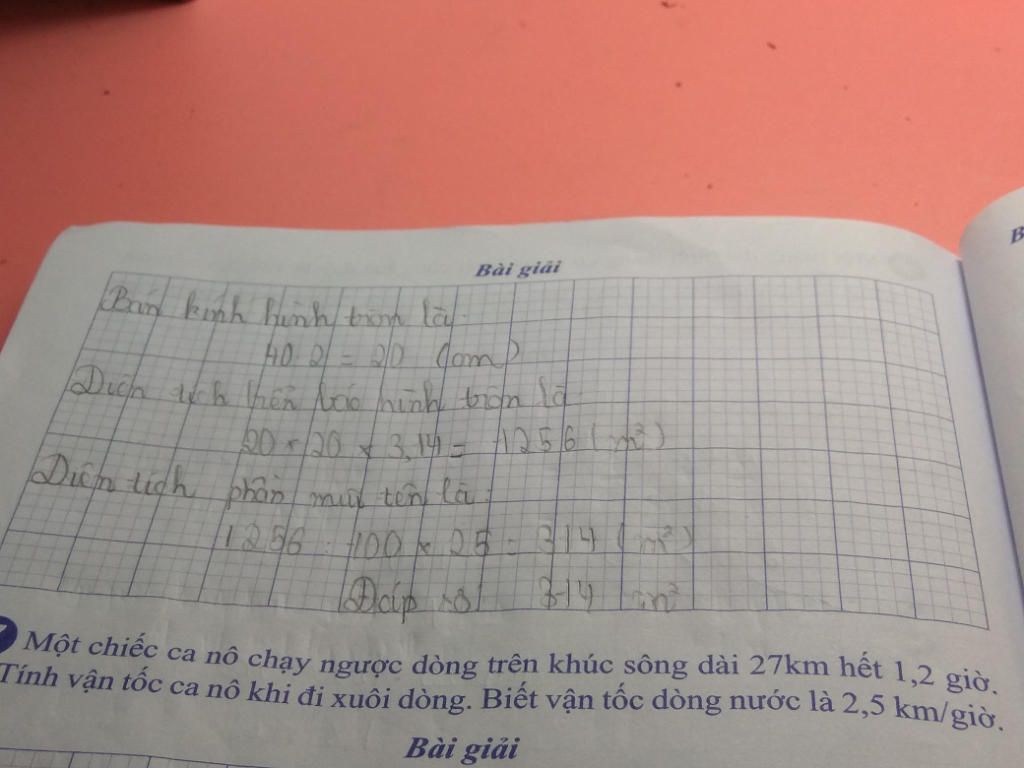 Bài giải
Bán kính hình tròn là:
40 : 2 = 20 (cm)
Diện tích biển báo hình tròn là:
20 × 20 × 3,14 = 1256 (m²)
Diện tích phần mũi tên là:
1256 : 100 × 25 = 314 (m²)
Đáp số 314 m²
7 Một chiếc ca nô chạy ngược dòng trên khúc sông dài 27km hết 1,2 giờ.
Tính vận tốc ca nô khi đi xuôi dòng. Biết vận tốc dòng nước là 2,5 km/giờ.
Bài giải
B